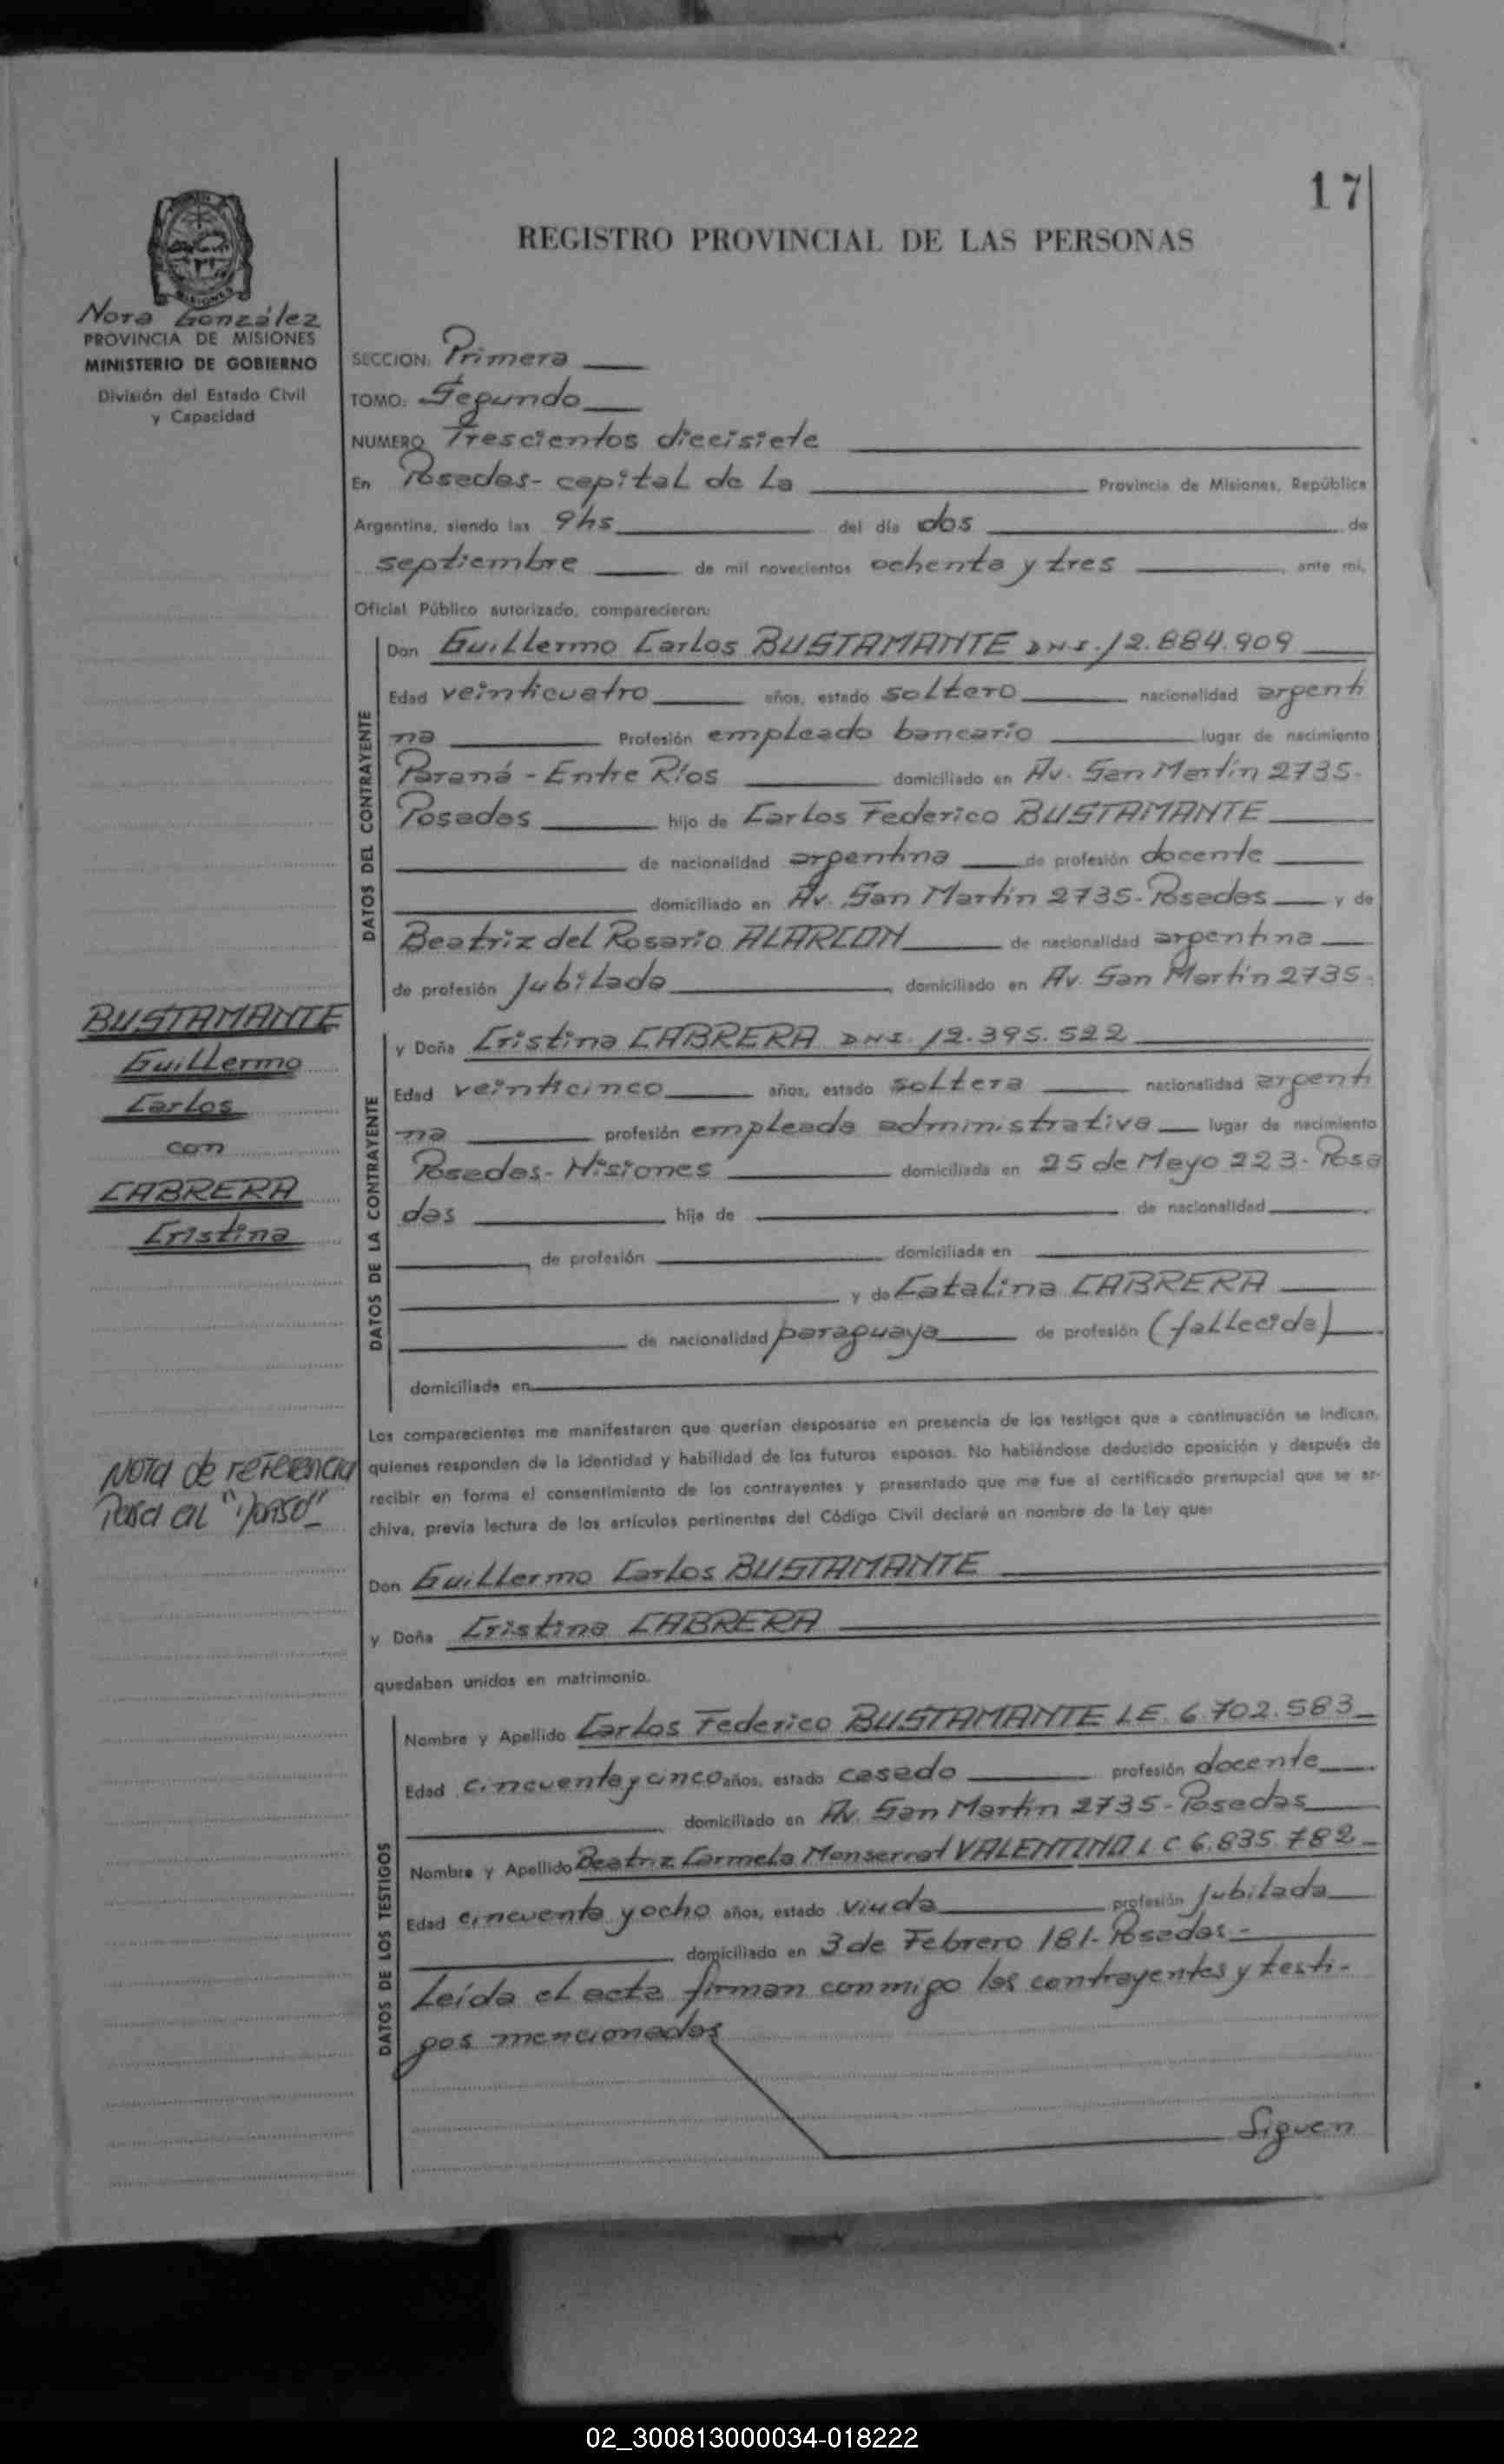 17
REGISTRO PROVINCIAL DE LAS PERSONAS
MISIONES
Nora González
PROVINCIA DE MISIONES
MINISTERIO DE GOBIERNO
División del Estado Civil
y Capacidad
SECCION: Primera
TOMO: Segundo
NUMERO Trescientos diecisiete
En Posadas - capital de la Provincia de Misiones, República
Argentina, siendo las 9hs del día dos de
septiembre de mil novecientos ochenta y tres, ante mí,
Oficial Público autorizado, comparecieron:
DATOS DEL CONTRAYENTE
Don Guillermo Carlos BUSTAMANTE DNI. 12.884.909
Edad veinticuatro años, estado soltero nacionalidad argenti
na Profesión empleado bancario lugar de nacimiento
Paraná - Entre Ríos domiciliado en Av. San Martín 2735-
Posadas hijo de Carlos Federico BUSTAMANTE
de nacionalidad argentina de profesión docente
domiciliado en Av. San Martín 2735- Posadas y de
Beatriz del Rosario ALARCON de nacionalidad argentina
de profesión Jubilada, domiciliado en Av. San Martín 2735-
DATOS DE LA CONTRAYENTE
y Doña Cristina CABRERA DNI. 12.395.522
Edad veinticinco años, estado soltera nacionalidad argenti
na profesión empleada administrativa lugar de nacimiento
Posadas- Misiones domiciliada en 25 de Mayo 223- Posa
das hija de de nacionalidad
, de profesión domiciliada en
y de Catalina CABRERA
de nacionalidad paraguaya de profesión (fallecida)
domiciliada en
BUSTAMANTE
Guillermo
Carlos
con
CABRERA
Cristina
Los comparecientes me manifestaron que querían desposarse en presencia de los testigos que a continuación se indican,
quienes responden de la identidad y habilidad de los futuros esposos. No habiéndose deducido oposición y después de
recibir en forma el consentimiento de los contrayentes y presentado que me fue el certificado prenupcial que se ar-
chiva, previa lectura de los artículos pertinentes del Código Civil declaré en nombre de la Ley que:
Nota de referencia
Pasa al "dorso"
Don Guillermo Carlos BUSTAMANTE
y Doña Cristina CABRERA
quedaban unidos en matrimonio.
DATOS DE LOS TESTIGOS
Nombre y Apellido Carlos Federico BUSTAMANTE LE. 6.702.583
Edad cincuenta y cinco años, estado casado profesión docente
domiciliado en Av. San Martín 2735- Posadas
Nombre y Apellido Beatriz Carmela Monserrat VALENTINO L C 6.835.782
Edad cincuenta y ocho años, estado viuda profesión Jubilada
domiciliado en 3 de Febrero 181- Posadas-
Leída el acta firman conmigo los contrayentes y testi-
gos mencionados
Siguen
02_300813000034-018222